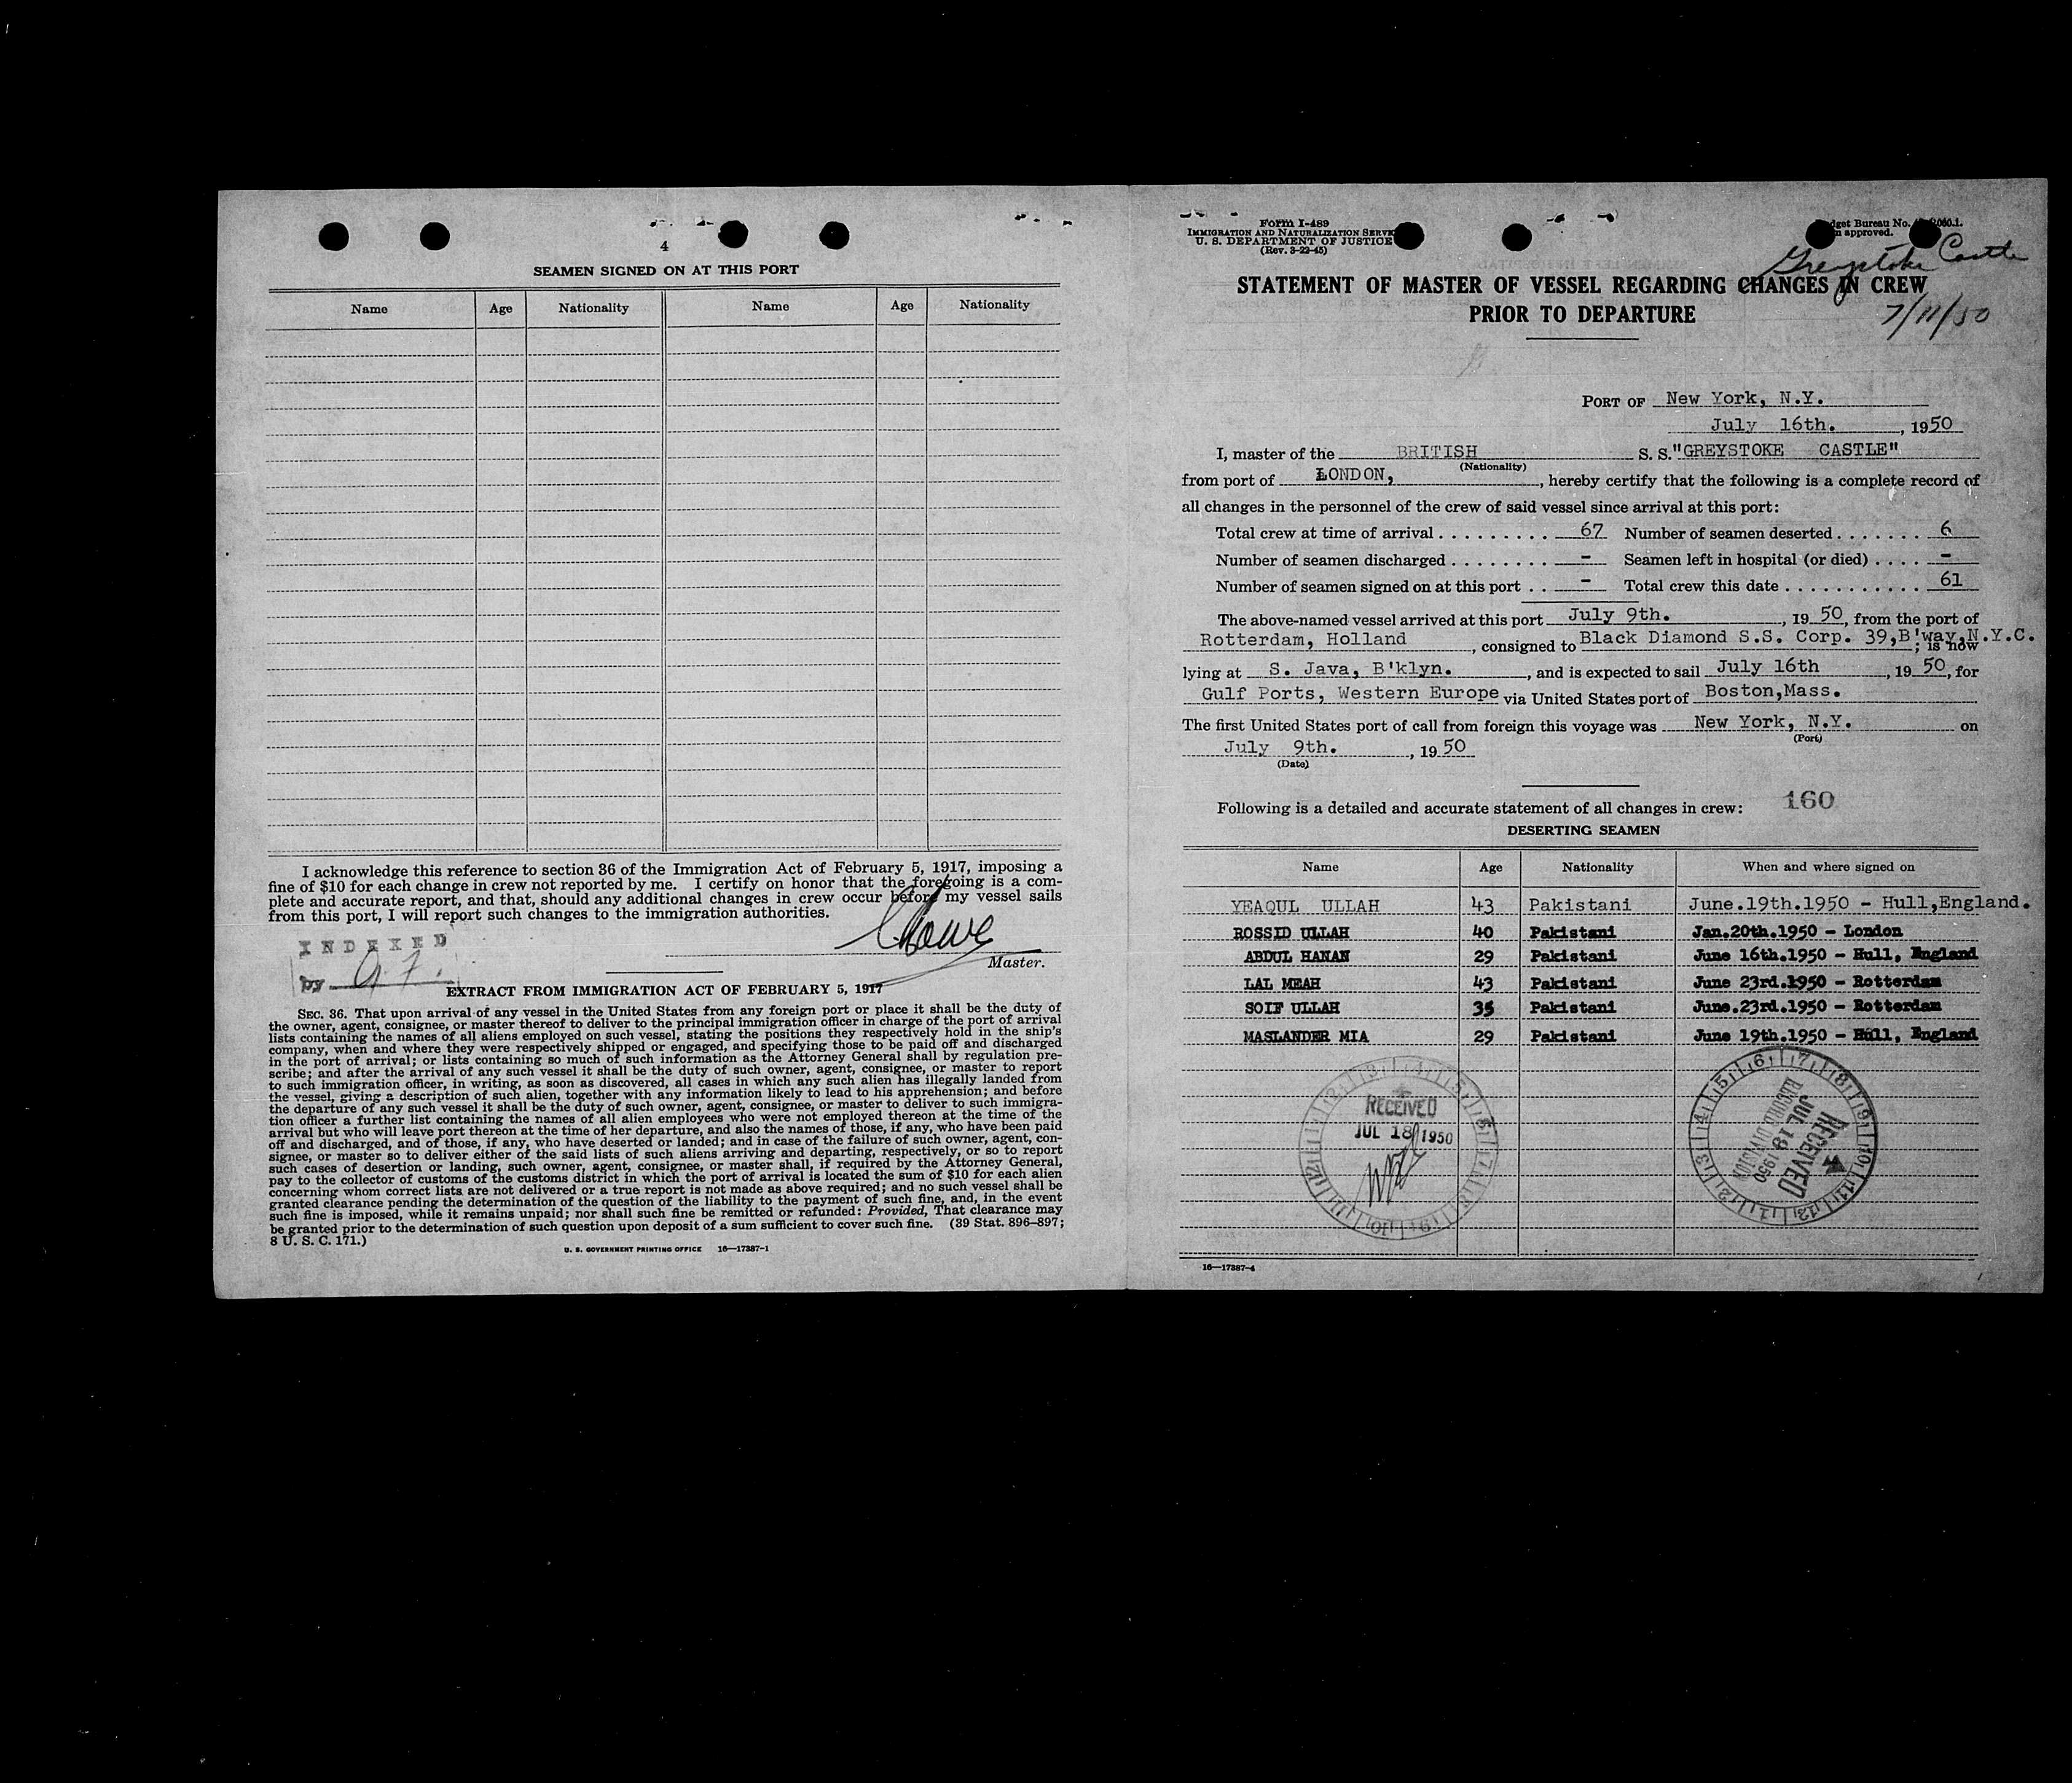 4
SEAMEN SIGNED ON AT THIS PORT
Name Age Nationality Name Age Nationality
I acknowledge this reference to section 36 of the Immigration Act of February 5, 1917, imposing a
fine of $10 for each change in crew not reported by me. I certify on honor that the foregoing is a com-
plete and accurate report, and that, should any additional changes in crew occur before my vessel sails
from this port, I will report such changes to the immigration authorities.
INDEXED
by
Master.
EXTRACT FROM IMMIGRATION ACT OF FEBRUARY 5, 1917
SEC. 36. That upon arrival of any vessel in the United States from any foreign port or place it shall be the duty of
the owner, agent, consignee, or master thereof to deliver to the principal immigration officer in charge of the port of arrival
lists containing the names of all aliens employed on such vessel, stating the positions they respectively hold in the ship's
company, when and where they were respectively shipped or engaged, and specifying those to be paid off and discharged
in the port of arrival; or lists containing so much of such information as the Attorney General shall by regulation pre-
scribe; and after the arrival of any such vessel it shall be the duty of such owner, agent, consignee, or master to report
to such immigration officer, in writing, as soon as discovered, all cases in which any such alien has illegally landed from
the vessel, giving a description of such alien, together with any information likely to lead to his apprehension; and before
the departure of any such vessel it shall be the duty of such owner, agent, consignee, or master to deliver to such immigra-
tion officer a further list containing the names of all alien employees who were not employed thereon at the time of the
arrival but who will leave port thereon at the time of her departure, and also the names of those, if any, who have been paid
off and discharged, and of those, if any, who have deserted or landed; and in case of the failure of such owner, agent, con-
signee, or master so to deliver either of the said lists of such aliens arriving and departing, respectively, or so to report
such cases of desertion or landing, such owner, agent, consignee, or master shall, if required by the Attorney General,
pay to the collector of customs of the customs district in which the port of arrival is located the sum of $10 for each alien
concerning whom correct lists are not delivered or a true report is not made as above required; and no such vessel shall be
granted clearance pending the determination of the question of the liability to the payment of such fine, and, in the event
such fine is imposed, while it remains unpaid; nor shall such fine be remitted or refunded: Provided, That clearance may
be granted prior to the determination of such question upon deposit of a sum sufficient to cover such fine. (39 Stat. 896–897;
8 U. S. C. 171.)
U. S. GOVERNMENT PRINTING OFFICE 16—17387-1
Form I-489
IMMIGRATION AND NATURALIZATION SERV
U. S. DEPARTMENT OF JUSTICE
(Rev. 3-22-45)
Bureau No.
approved.
Greystoke Castle
STATEMENT OF MASTER OF VESSEL REGARDING CHANGES IN CREW
PRIOR TO DEPARTURE
7/11/50
PORT OF New York, N.Y.
July 16th. , 1950
I, master of the BRITISH S. S. "GREYSTOKE CASTLE"
(Nationality)
from port of LONDON, , hereby certify that the following is a complete record of
all changes in the personnel of the crew of said vessel since arrival at this port:
Total crew at time of arrival . . . . . . . . . 67 Number of seamen deserted . . . . . . . 6
Number of seamen discharged . . . . . . . . - Seamen left in hospital (or died) . . . . -
Number of seamen signed on at this port . . - Total crew this date . . . . . . . . . . . 61
The above-named vessel arrived at this port July 9th. , 19 50, from the port of
Rotterdam, Holland , consigned to Black Diamond S.S. Corp. 39,B'way,N.Y.C. ; is now
lying at S. Java, B'klyn. , and is expected to sail July 16th , 19 50, for
Gulf Ports, Western Europe via United States port of Boston,Mass.
The first United States port of call from foreign this voyage was New York, N.Y. on
(Port)
July 9th. , 19 50
(Date)
Following is a detailed and accurate statement of all changes in crew: 160
DESERTING SEAMEN
Name Age Nationality When and where signed on
YEAQUL ULLAH 43 Pakistani June.19th.1950 - Hull,England.
ROSSID ULLAH 40 Pakistani Jan.20th.1950 - London
ABDUL HANAN 29 Pakistani June 16th.1950 - Hull, England
LAL MEAH 43 Pakistani June 23rd.1950 - Rotterdam
SOIF ULLAH 35 Pakistani June.23rd.1950 - Rotterdam
MASLANDER MIA 29 Pakistani June 19th.1950 - Hull, England
RECEIVED
JUL 18 1950
RECEIVED
JUL 19 1950
16—17387-4